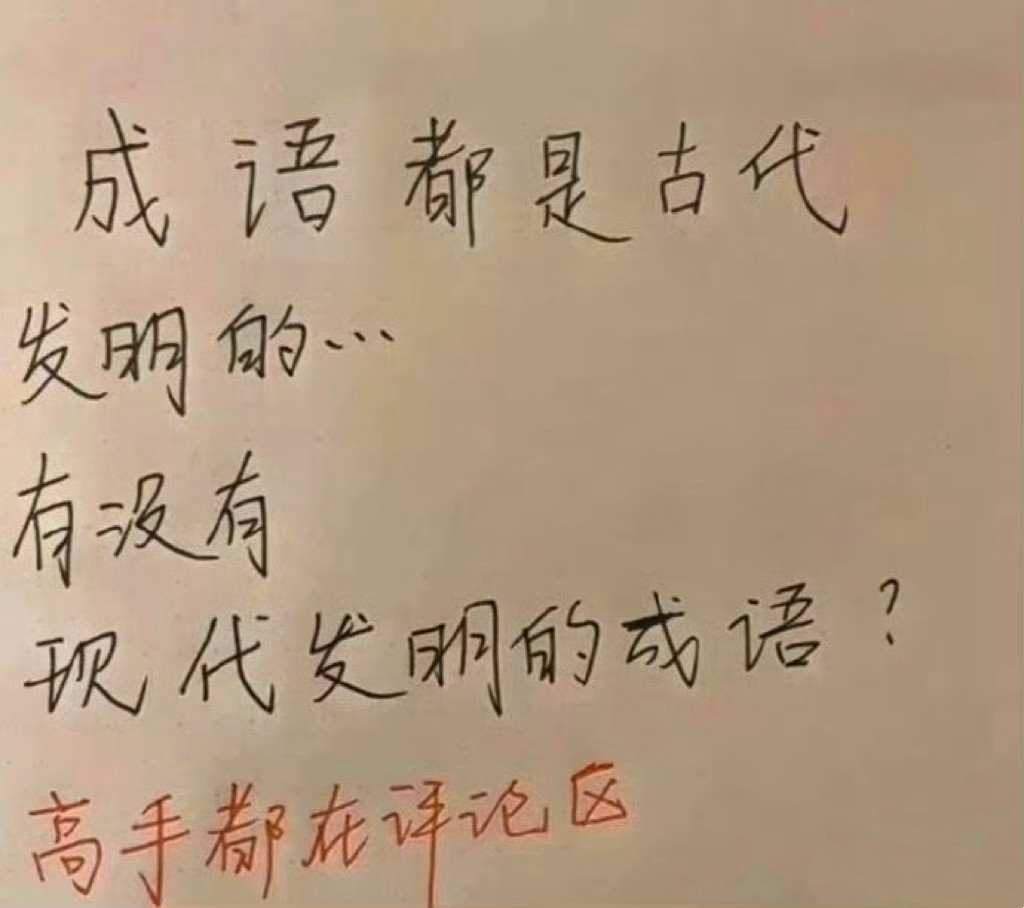 成语都是古代
发明的…
有没有
现代发明的成语?
高手都在评论区